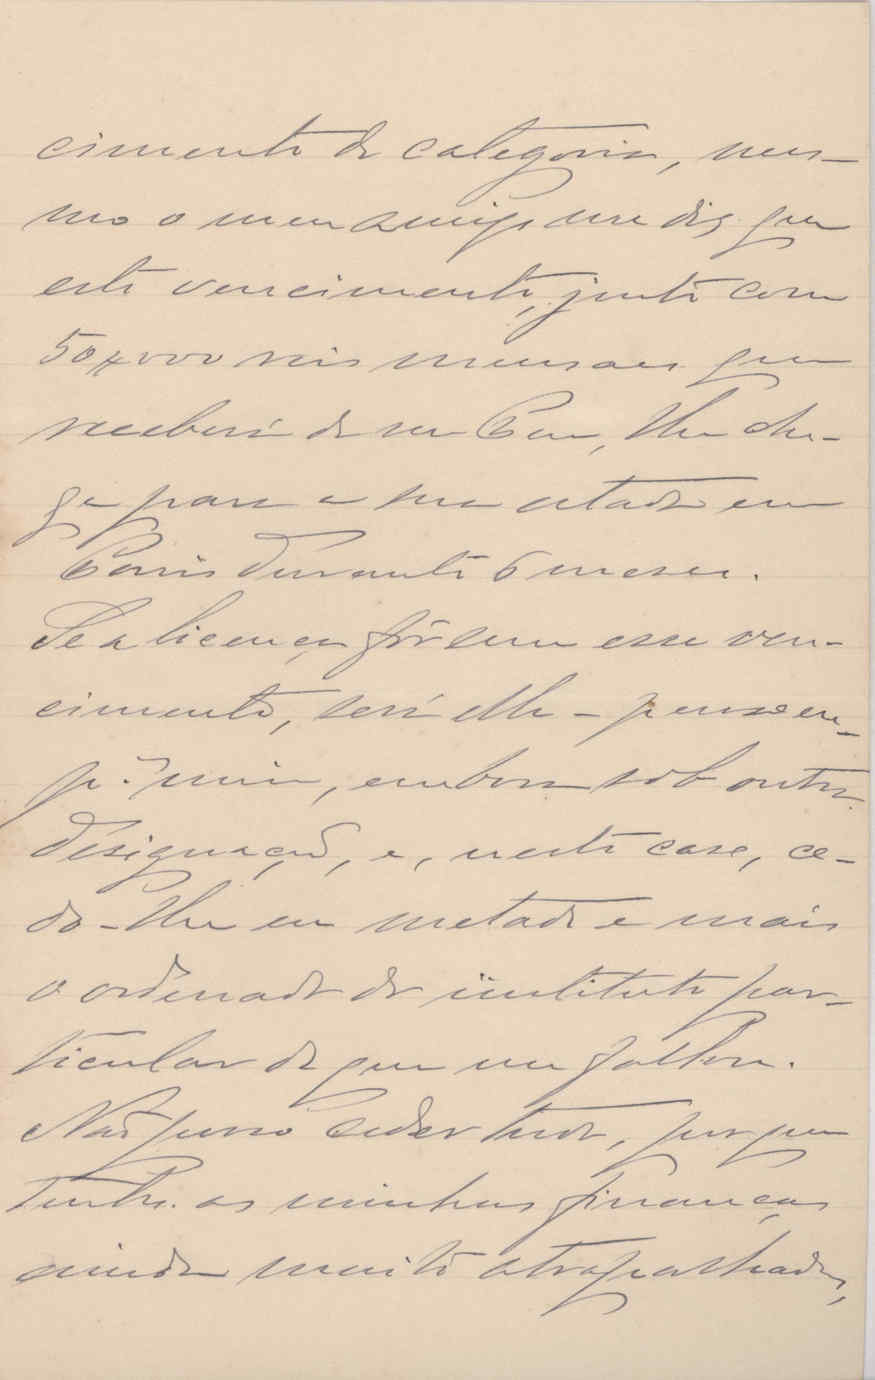 cimento de categoria, mes-
mo o meu amigo me diz que
este vencimento, junto com
50$000 reis mensaes que
receberá de seu Pae, lhe che-
ga para a sua estada em
Paris durante 6 meses.
Se a licença fôr sem esse ven-
cimento, será elle - penso eu -
pª. mim, embora sob outra
designação, e, neste caso, ce-
do-lhe eu metade e mais
o ordenado do instituto par-
ticular de que me fallou.
Não posso ceder tudo, porque
tenho as minhas finanças
ainda muito atrapalhadas,